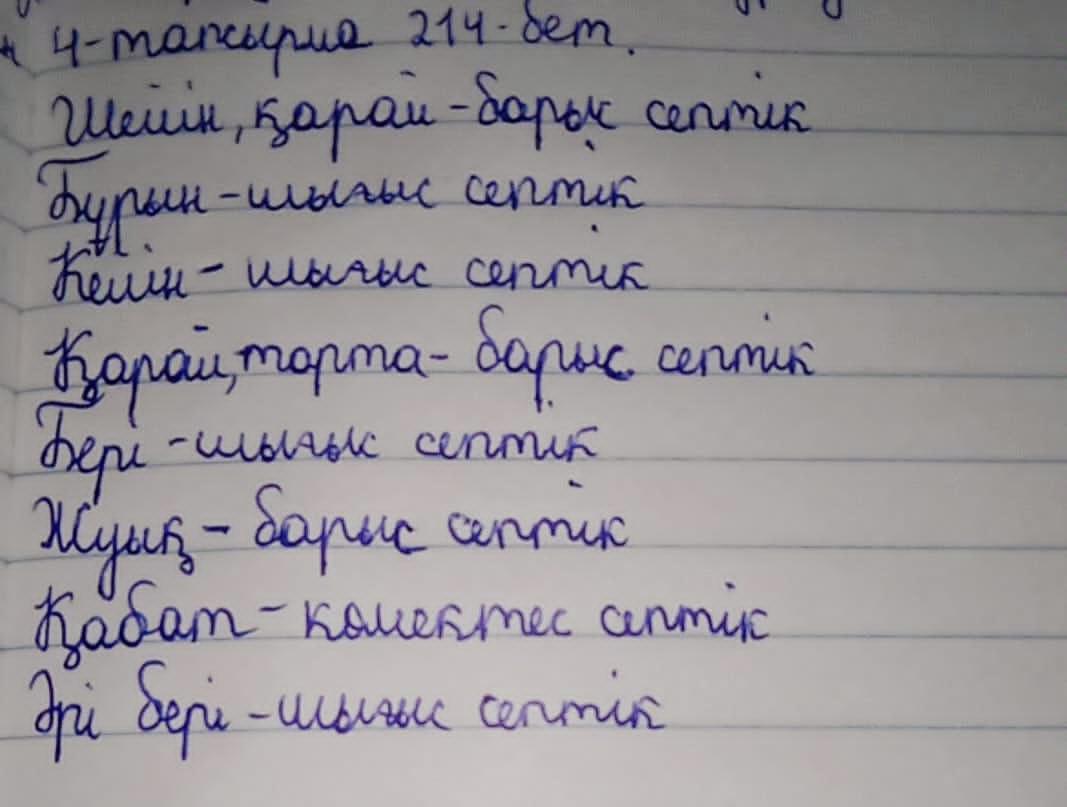 4-тапсырма 214-бет.
Шейін, қарай - барыс септік
Бұрын - шығыс септік
Кейін - шығыс септік
Қарай, тарта - барыс септік
Бері - шығыс септік
Жуық - барыс септік
Қабат - көмектес септік
Әрі бері - шығыс септік